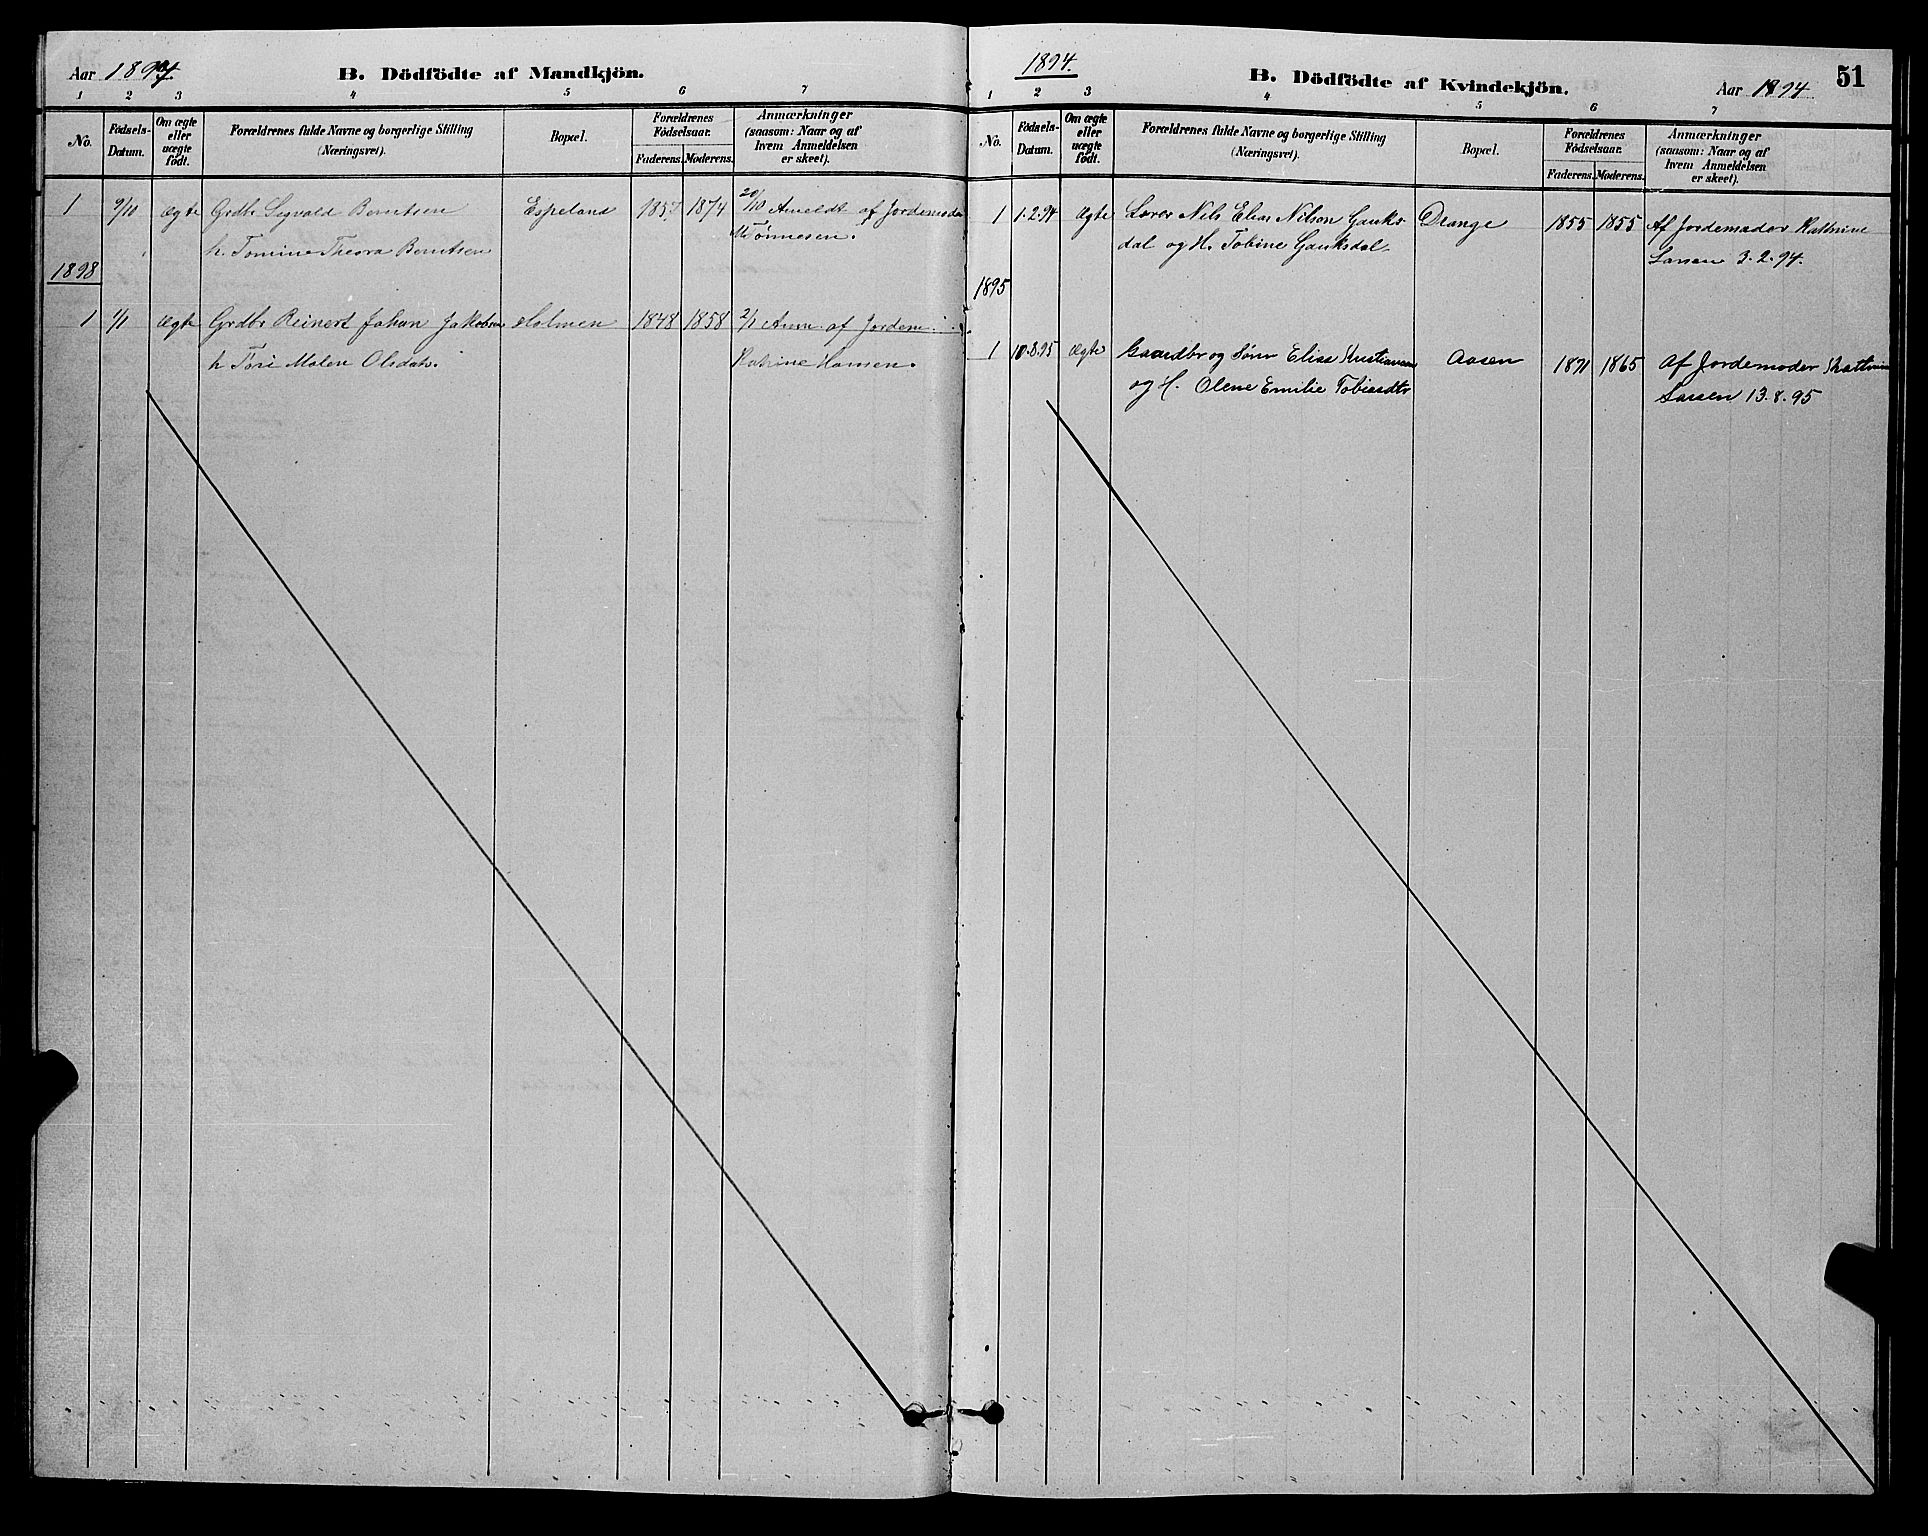 Aar 1894
B. Dödfödte af Mandkjön.
1 2 3 4 5 6 7
No.
Födsels-Datum.
Om ægte eller uægte födt.
Forældrenes fulde Navne og borgerlige Stilling
(Næringsvei).
Bopæl.
Forældrenes Födselsaar.
Faderens. Moderens.
Anmærkninger
(saasom: Naar og af
hvem Anmeldelsen
er skeet).
1 9/10 Ægte Grdbr Sigvald Berntsen Espeland 1857 1874 20/10 Anmeldt af Jordemoder
h. Tomine Theora Berntsen Tönnesen.
1898
1 1/1 Ægte Grdbr Reinert Johan Jakobsen Holmen 1848 1858 2/1 Anm. af Jordem.
h Tori Malen Olsdatr. Katrine Hansen.
1894.
B. Dödfödte af Kvindekjön.
Aar 1894
51
1 2 3 4 5 6 7
No.
Födsels-Datum.
Om ægte eller uægte födt.
Forældrenes fulde Navne og borgerlige Stilling
(Næringsvei).
Bopæl.
Forældrenes Födselsaar.
Faderens. Moderens.
Anmærkninger
(saasom: Naar og af
hvem Anmeldelsen
er skeet).
1 1.2.94 Ægte Lærer Nils Elias Nilsen Gauks- Drange 1855 1855 Af Jordemoder Kathrine
dal og H. Tobine Gauksdal. 3.2.94.
1895
1 10.8.95 Ægte Gaardbr og Elias Kristiansen Aasen 1871 1865 Af Jordemoder Kathrine
og H. Olene Emilie Tobiasdtr 13.8.95